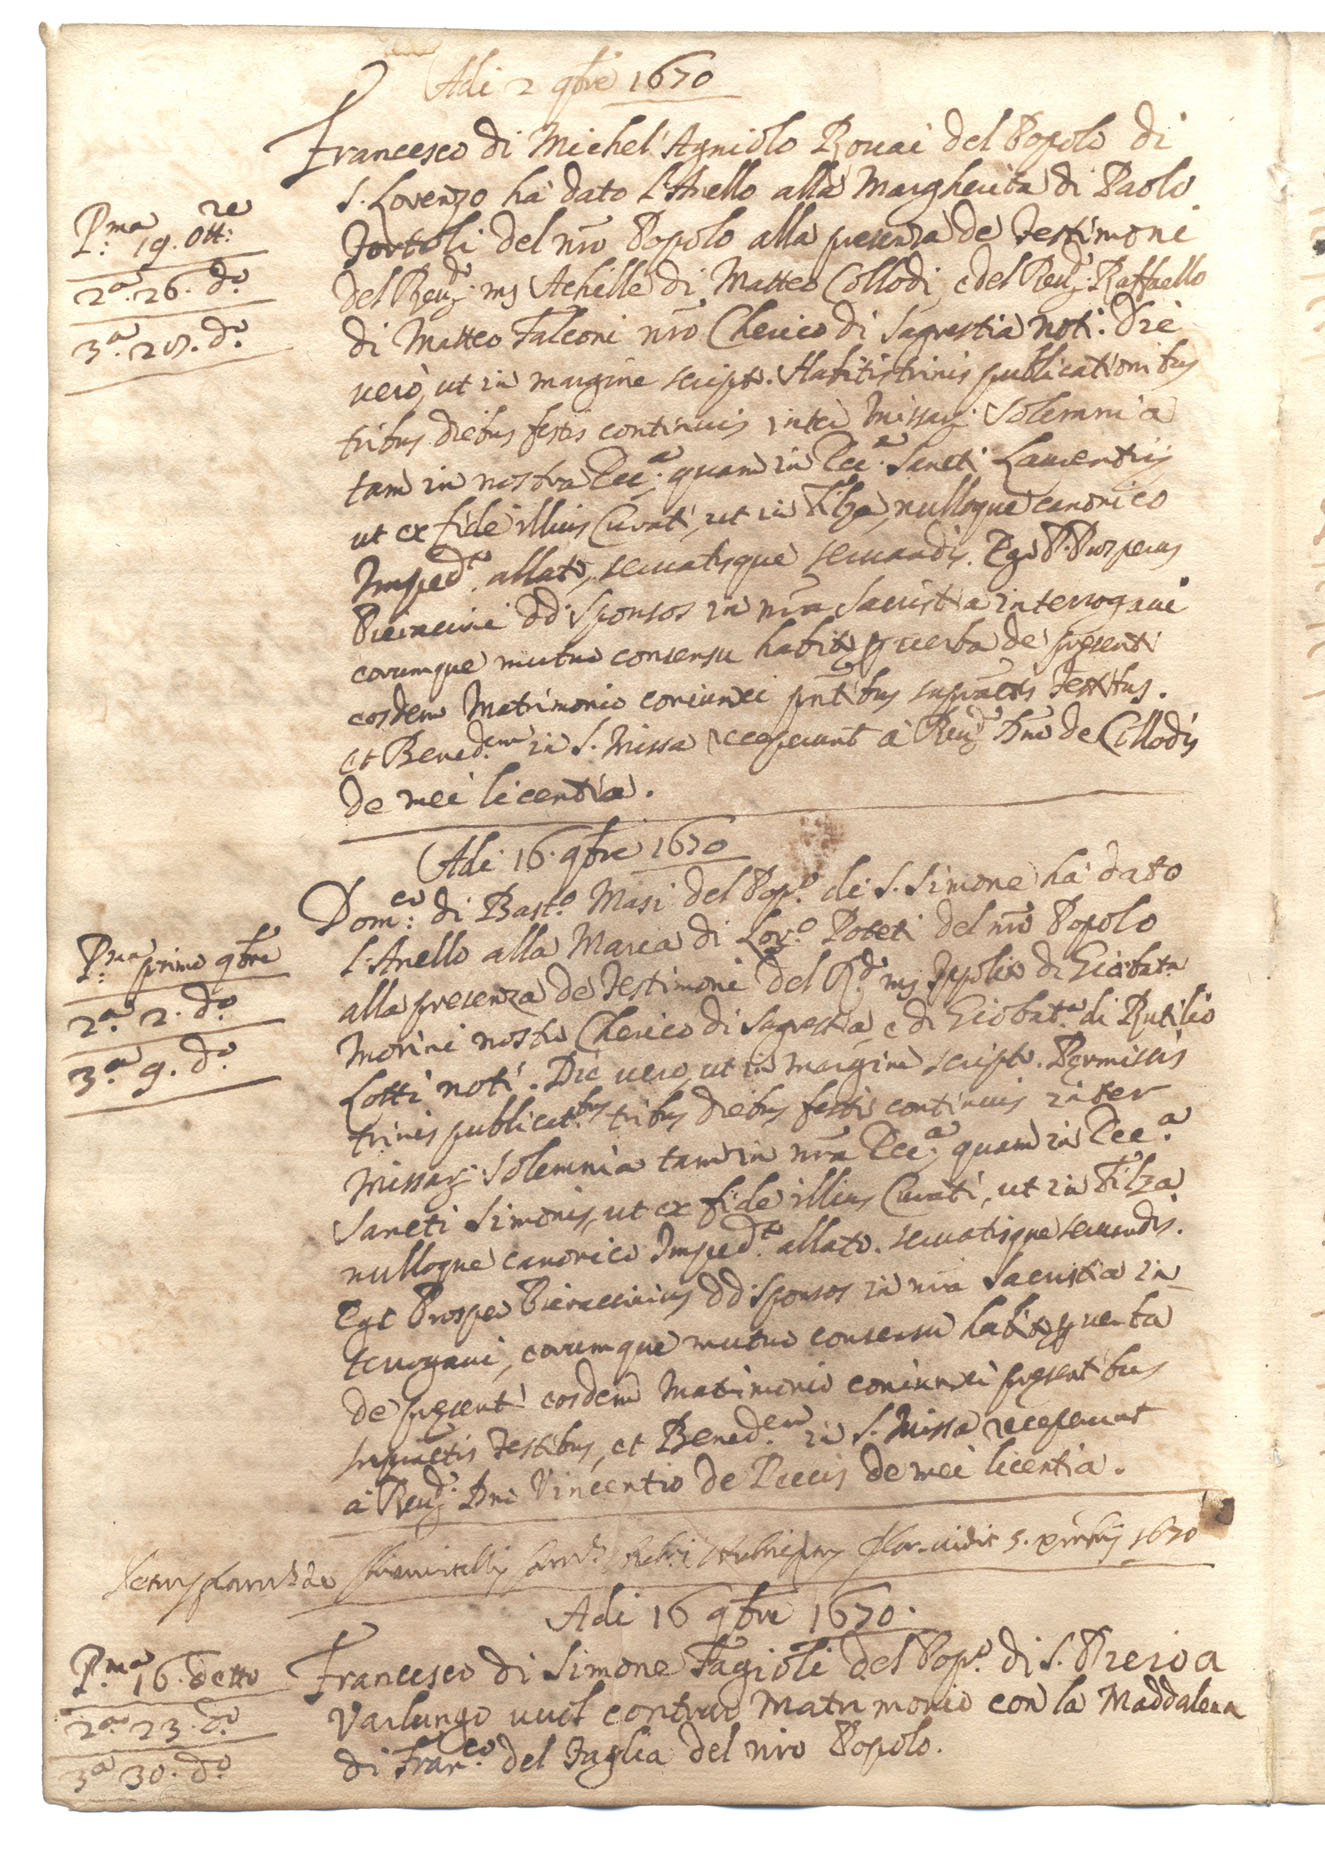 Adi 2 9bre 1670
Francesco di Michel'Agniolo Rovai del Popolo di
S. Lorenzo ha dato l'Anello alla Margherita di Paolo
Tortoli del nro Popolo alla presenza de Testimoni
del Reu.do mg Achille di Matteo Collodi, e del Reu.do Raffaello
di Matteo Falconi nro Cherico di Sagrestia noti. Die
uero, ut in margine script. Habitis trinis publicationibus
tribus diebus festis continuis inter Missar. Solemnia
tam in nostra Ecc.a quam in Ecc.a Sancti Laurentij
ut ex fide illius Curati, ut in Filza, nulloque canonico
Imped.to allato, seruatisque seruandis. Ego P. Prosperus
Pieraccini dd. Sponsos in nra Sacristia interrogaui
eorumque mutuo consensu habito p uerba de presenti
eosdem Matrimonio coniunxi pntibus supradictis Testibus.
et Bened.em in S. Missa receperunt à Reu.do Dno de Collodis
de mei licentia.
Adi 16. 9bre 1670
P.ma 19. Ott.re
2.a 26. d.o
3.a 28. d.o
Dom.co di Bast.o Masi del Pop.o di S. Simone hà dato
l'Anello alla Maria di Lor.o Poteti del nro Popolo
alla presenza de Testimoni del R.do mg Ippolito di Giobat.a
Morini nostro Cherico di Sagrestia, e di Giobat.a di Rutilio
Lotti noti. Die uero, ut in margine script. Permissis
trinis publicat.bus tribus diebus festis continuis inter
Missar. Solemnia tam in nra Ecc.a quam in Ecc.a
Sancti Simonis, ut ex fide illius Curati, ut in Filza
nulloque canonico Imped.to allato. seruatisque seruandis.
Ego Prosper Pieraccinius dd. Sponsos in nra Sacristia in
terrogaui, eorumque mutuo consensu habito p uerba
de presenti eosdem Matrimonio coniunxi presentibus
supradictis Testibus, et Bened.em in S. Missa receperunt
à Reu.do Dno Vincentio de Peccis de mei licentia.
P.ma primo 9bre
2.a 2. d.o
3.a 9. d.o
uidit 5. Xmbris 1670
Adi 16 9bre 1670.
P.ma 16. detto
2.a 23. d.o
3.a 30. d.o
Francesco di Simone Fagioli del Pop.o di S. Piero a
Varlungo uuol contrar Matrimonio con la Maddalena
di Fran.co del Taglia del nro Popolo.